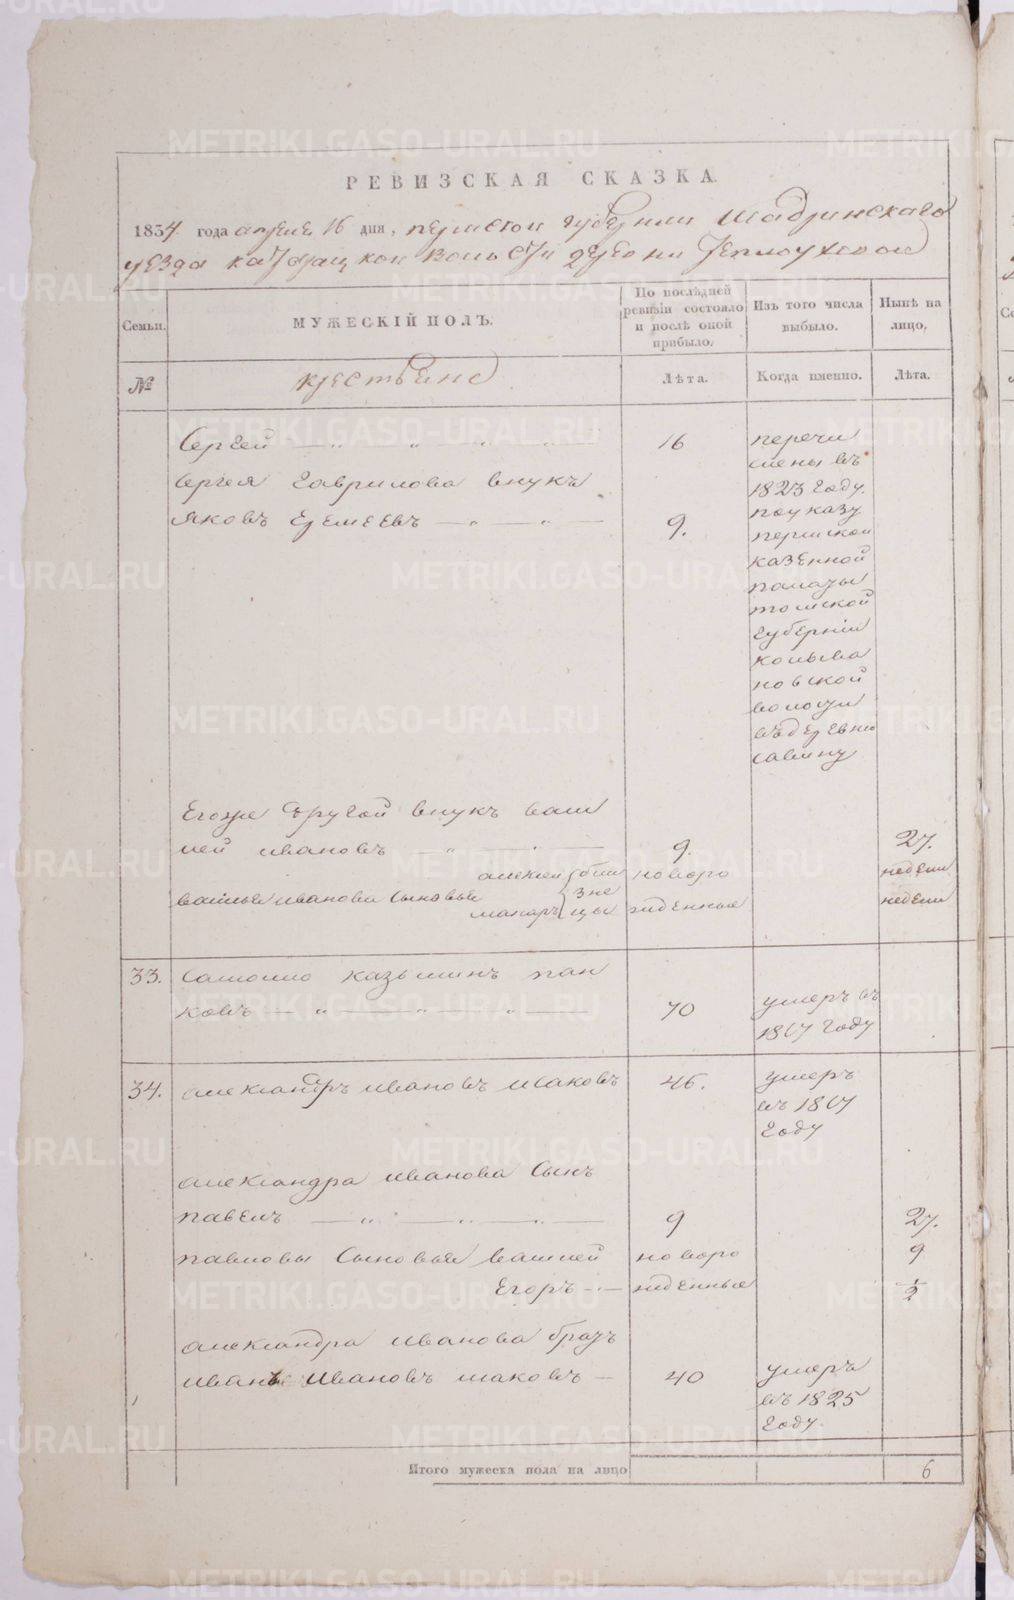 РЕВИЗСКАЯ СКАЗКА.
1834 года апреля 16 дня, пермской губернии Шадринскаго
уезда волости деревни
Семьи.
МУЖЕСКІЙ ПОЛЪ.
По послѣдней ревизіи состояло и послѣ оной прибыло.
Изъ того числа выбыло.
Нынѣ на лицо.
№
крестьяне
Лѣта.
Когда именно.
Лѣта.
Сергей — „ „ „ „ — 16
перечи
слены въ
Сергея Гаврилова внукъ
1823 году.
Яковъ Еремеевъ — „ — „ — 9.
по указу
пермской
казенной
палаты
томской
губерніи
колыва
новской
волости
въ деревню
савину
Егоже другой внукъ васи
лей ивановъ — „ — 9. 27.
алексей близ новоро недели
васильи иванова сыновья
макаръ не цы жденные недели
33. Самойло казьминъ пан
ковъ — „ — „ — „ — 70
умеръ въ
1817 году
34. александръ ивановъ исаковъ 46.
умеръ
въ 1817
году
александра иванова сынъ
павелъ — „ — „ — „ — 9 27.
павловы сыновья василей новоро 9
Егоръ — жденные 1/2
александра иванова братъ
иванъ ивановъ исаковъ — 40
умеръ
въ 1825
году.
Итого мужеска пола на лицо 6
METRIKI.GASO-URAL.RU